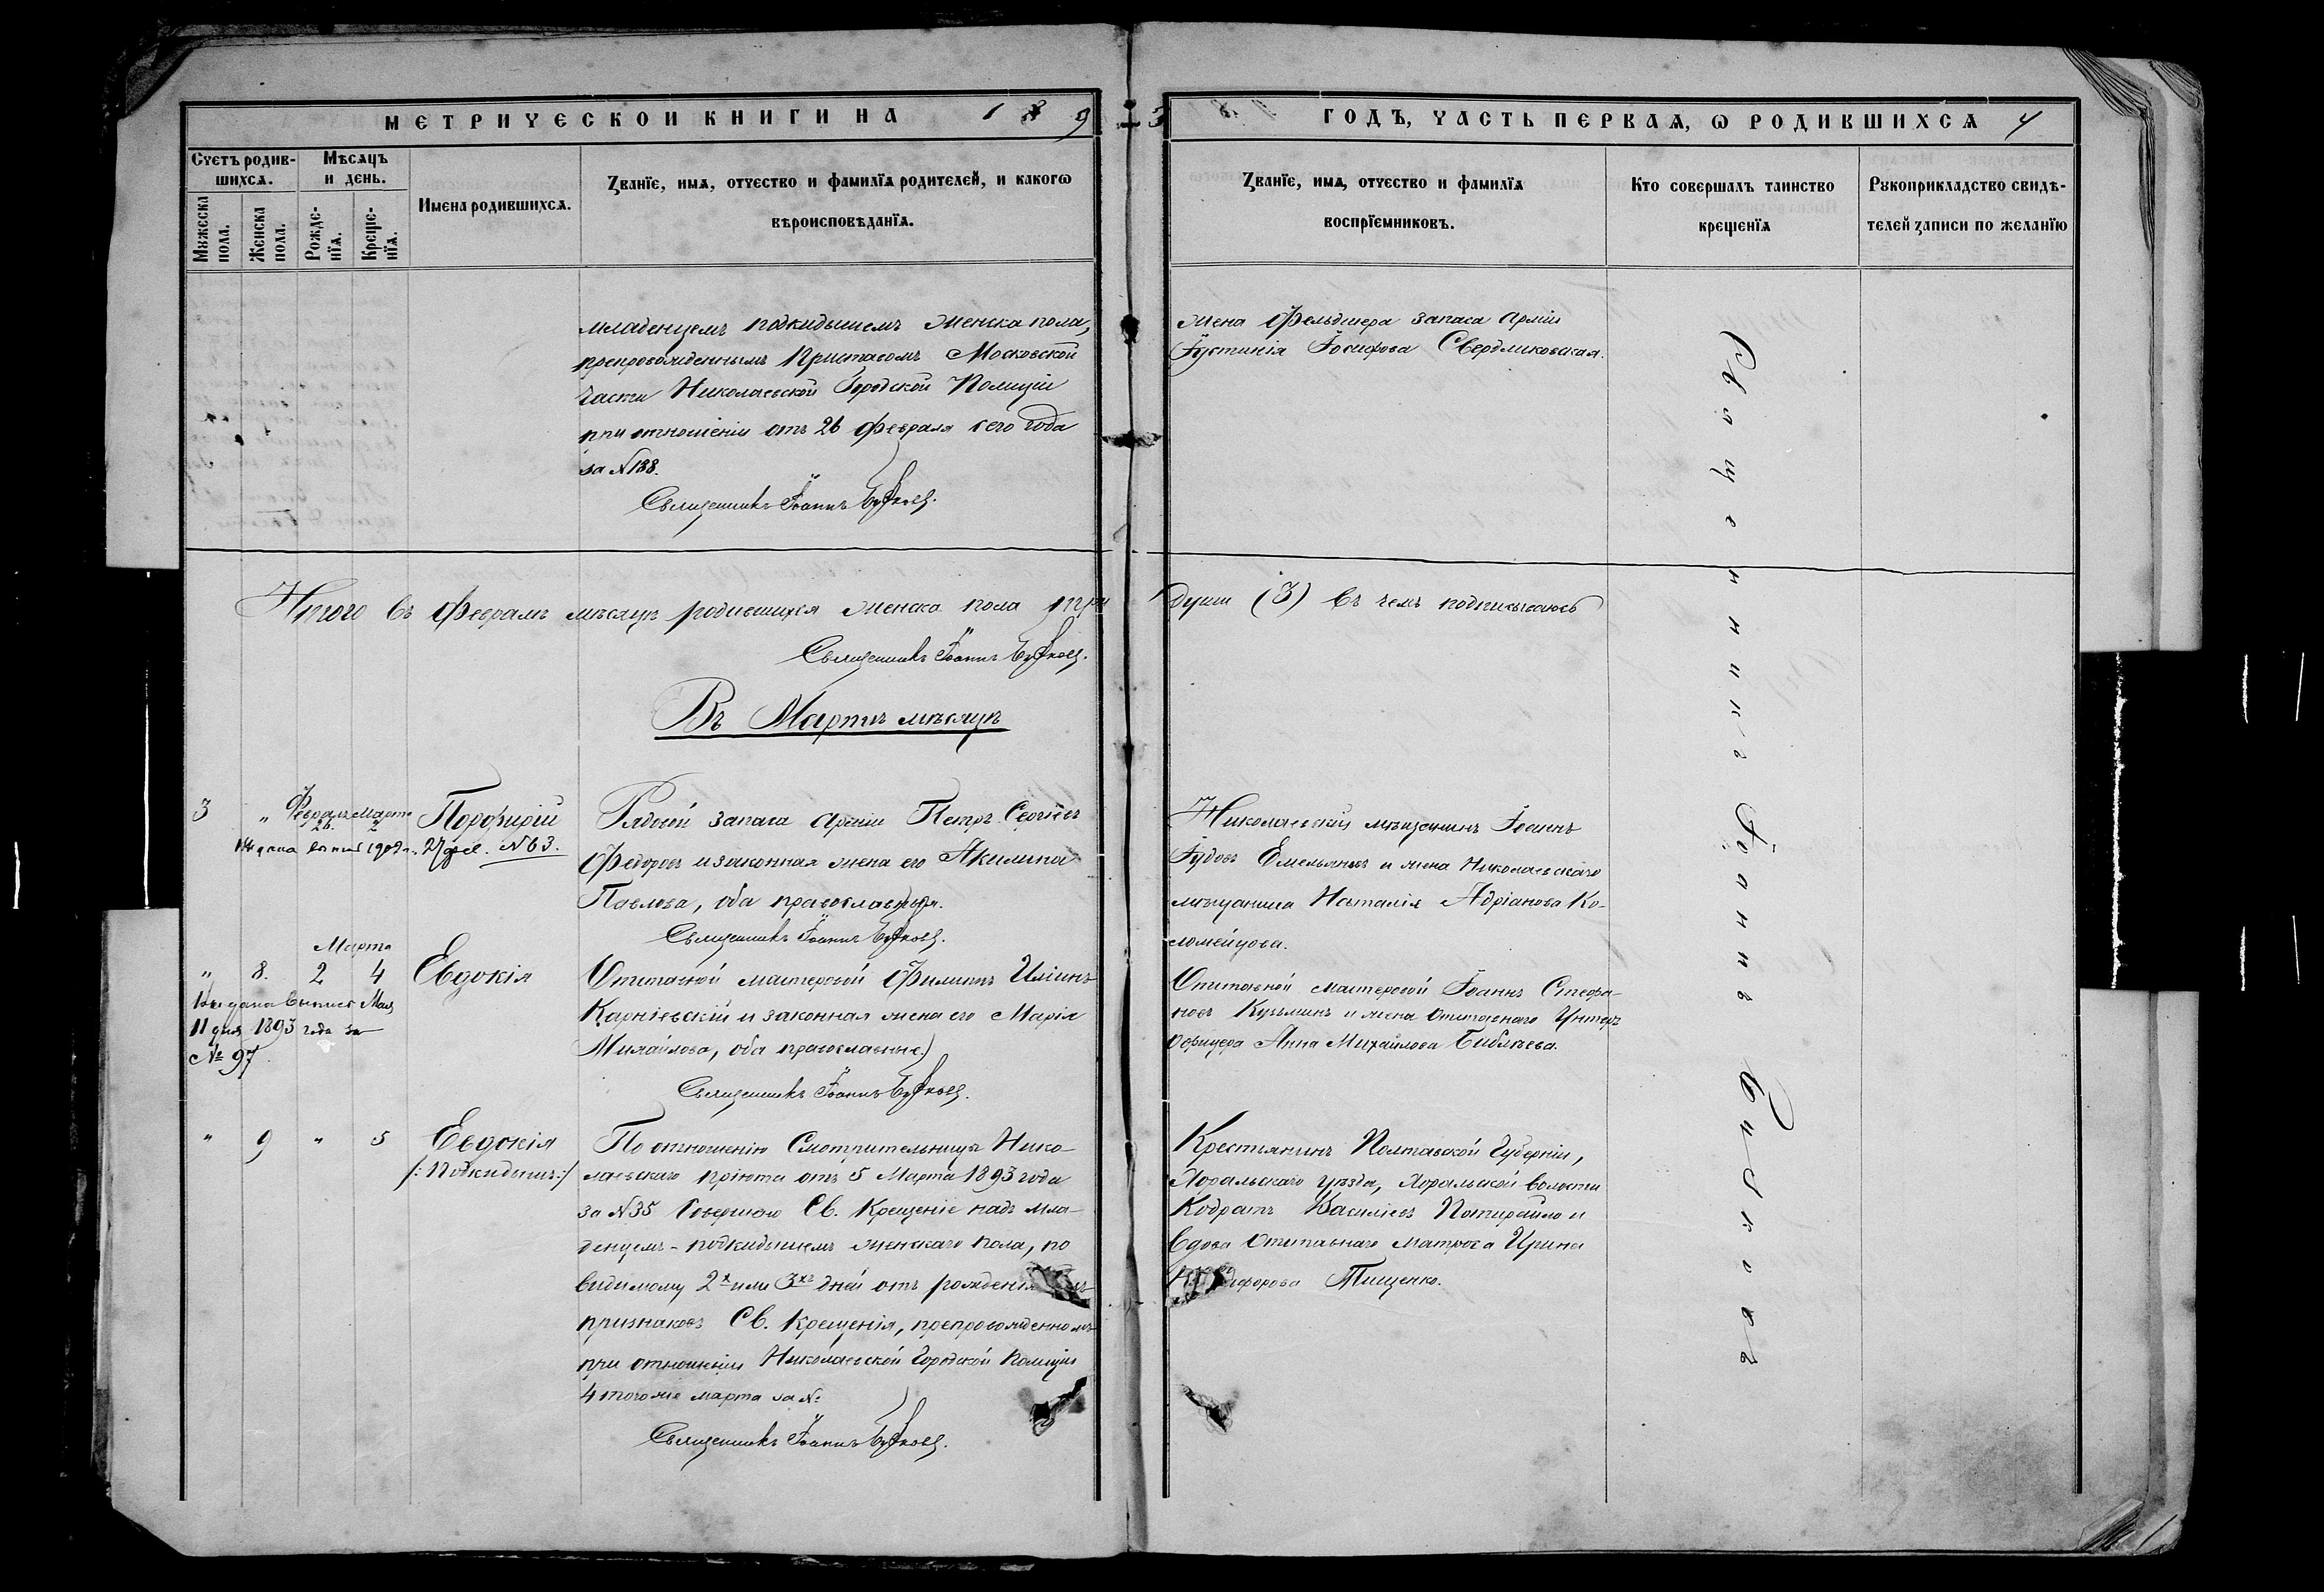 МЕТРИЧЕСКОИ КНИГИ НА 1893 ГОДЪ, ЧАСТЬ ПЕРВАѦ, Ѡ РОДИВШИХСѦ 4
Счетъ родив-
шихсѧ.
Мѣсѧцъ
и день.
Мужеска
пола.
Женска
пола.
Рожде-
нїѧ.
Креще-
нїѧ.
Имена родившихсѧ.
Званїе, имѧ, отчество и фамилїѧ родителей, и какогѡ
вѣроисповѣданїѧ.
Званїе, имѧ, отчество и фамилїѧ
воспрїемниковъ.
Кто совершалъ таинство
крещенїѧ
Рукоприкладство свидѣ-
телей записи по желанїю
младенцемъ подкидышемъ женска пола,
препровожденнымъ Приставомъ Московской
части Николаевской Городской Полиціи
при отношеніи отъ 26 Февраля сего года
за №188.
Священникъ Іоаннъ
жена Фельдшера запаса Арміи
Іустинія Іосифова Свердликовская.
Итого въ Февралѣ мѣсяцѣ родившихся женска пола три души (3) въ чемъ подписываюсь
Священникъ Іоаннъ
Въ Мартѣ мѣсяцѣ
3 " Февраля 26. Марта 2 Порфирій
Выдана выпись 1909 г. 27 фев. №63.
Рядовой запаса Арміи Петръ Сергіевъ
Федоровъ и законная жена его Акилина
Павлова, оба православные.
Священникъ Іоаннъ
Николаевскій мѣщанинъ Іоаннъ
Іудовъ Емельяновъ и жена Николаевскаго
мѣщанина Наталія Адріанова Ко-
ломейцова.
Марта
" 8. 2 4 Евдокія
Выдана выпись Мая
11 дня 1893 года за
№ 97
Отставной мастеровой Филиппъ Иліинъ
Карніевскій и законная жена его Марія
Михайлова, оба православные.
Священникъ Іоаннъ
Отставной мастеровой Іоаннъ Стефа-
новъ Кузьминъ и жена отставнаго Унтеръ
Офицера Анна Михайлова
" 9 " 5 Евдокія
/: Подкидышъ:/
По отношенію Смотрительницы Нико-
лаевскаго пріюта отъ 5 Марта 1893 года
за №35 Совершено Св. Крещеніе надъ мла-
денцемъ-подкидышемъ женскаго пола, по
видимому 2х или 3хъ дней отъ рожденія
признаковъ Св. Крещенія, препровожденномъ
при отношеніи Николаевской Городской Полиціи
4 того же марта за №
Священникъ Іоаннъ
Крестьянинъ Полтавской Губерніи,
Хорольскаго уѣзда, Хорольской волости
Кодратъ Василіевъ и
вдова отставнаго матроса Ирина
Тищенко.
Священникъ Іоаннъ